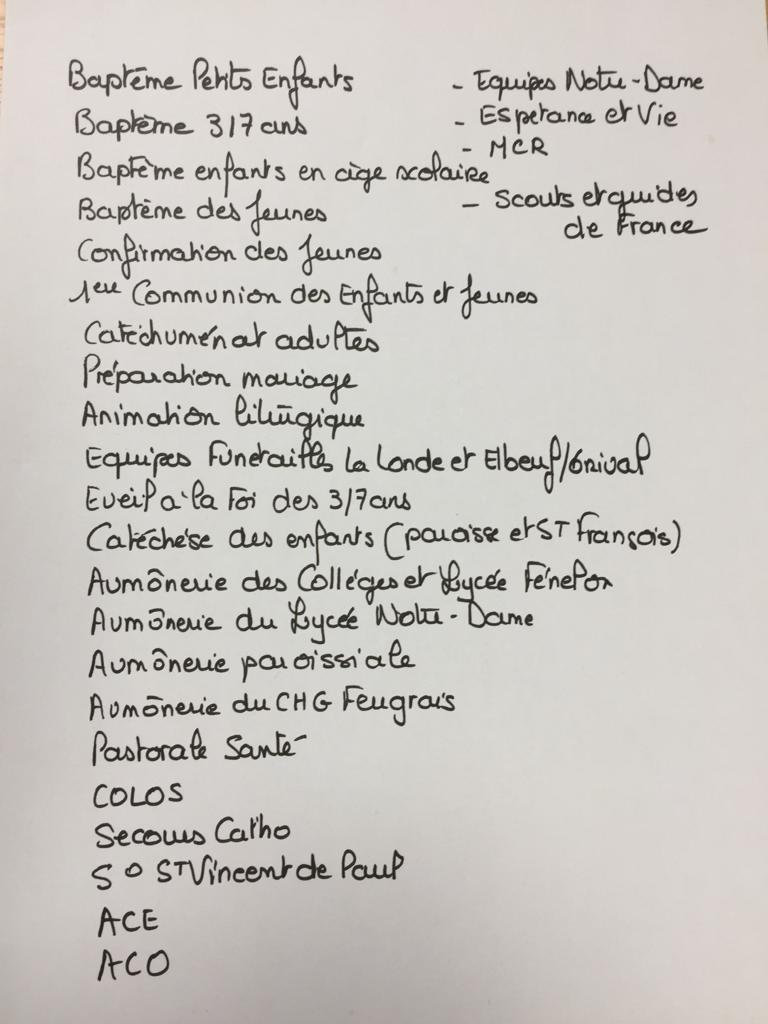 Baptême Petits Enfants
Baptême 3/7 ans
Baptême enfants en âge scolaire
Baptême des Jeunes
Confirmation des Jeunes
1ère Communion des Enfants et Jeunes
Catéchuménat adultes
Préparation mariage
Animation liturgique
Equipes Funérailles La Londe et Elbeuf/Grival
Eveil à la Foi des 3/7 ans
Catéchèse des enfants (paroisse et ST François)
Aumônerie des Collèges et Lycée Fénelon
Aumônerie du Lycée Notre-Dame
Aumônerie paroissiale
Aumônerie du CHG Feugrais
Pastorale Santé
COLOS
Secours Catho
So ST Vincent de Paul
ACE
ACO
- Equipes Notre-Dame
- Espérance et Vie
- MCR
- Scouts et guides
de France